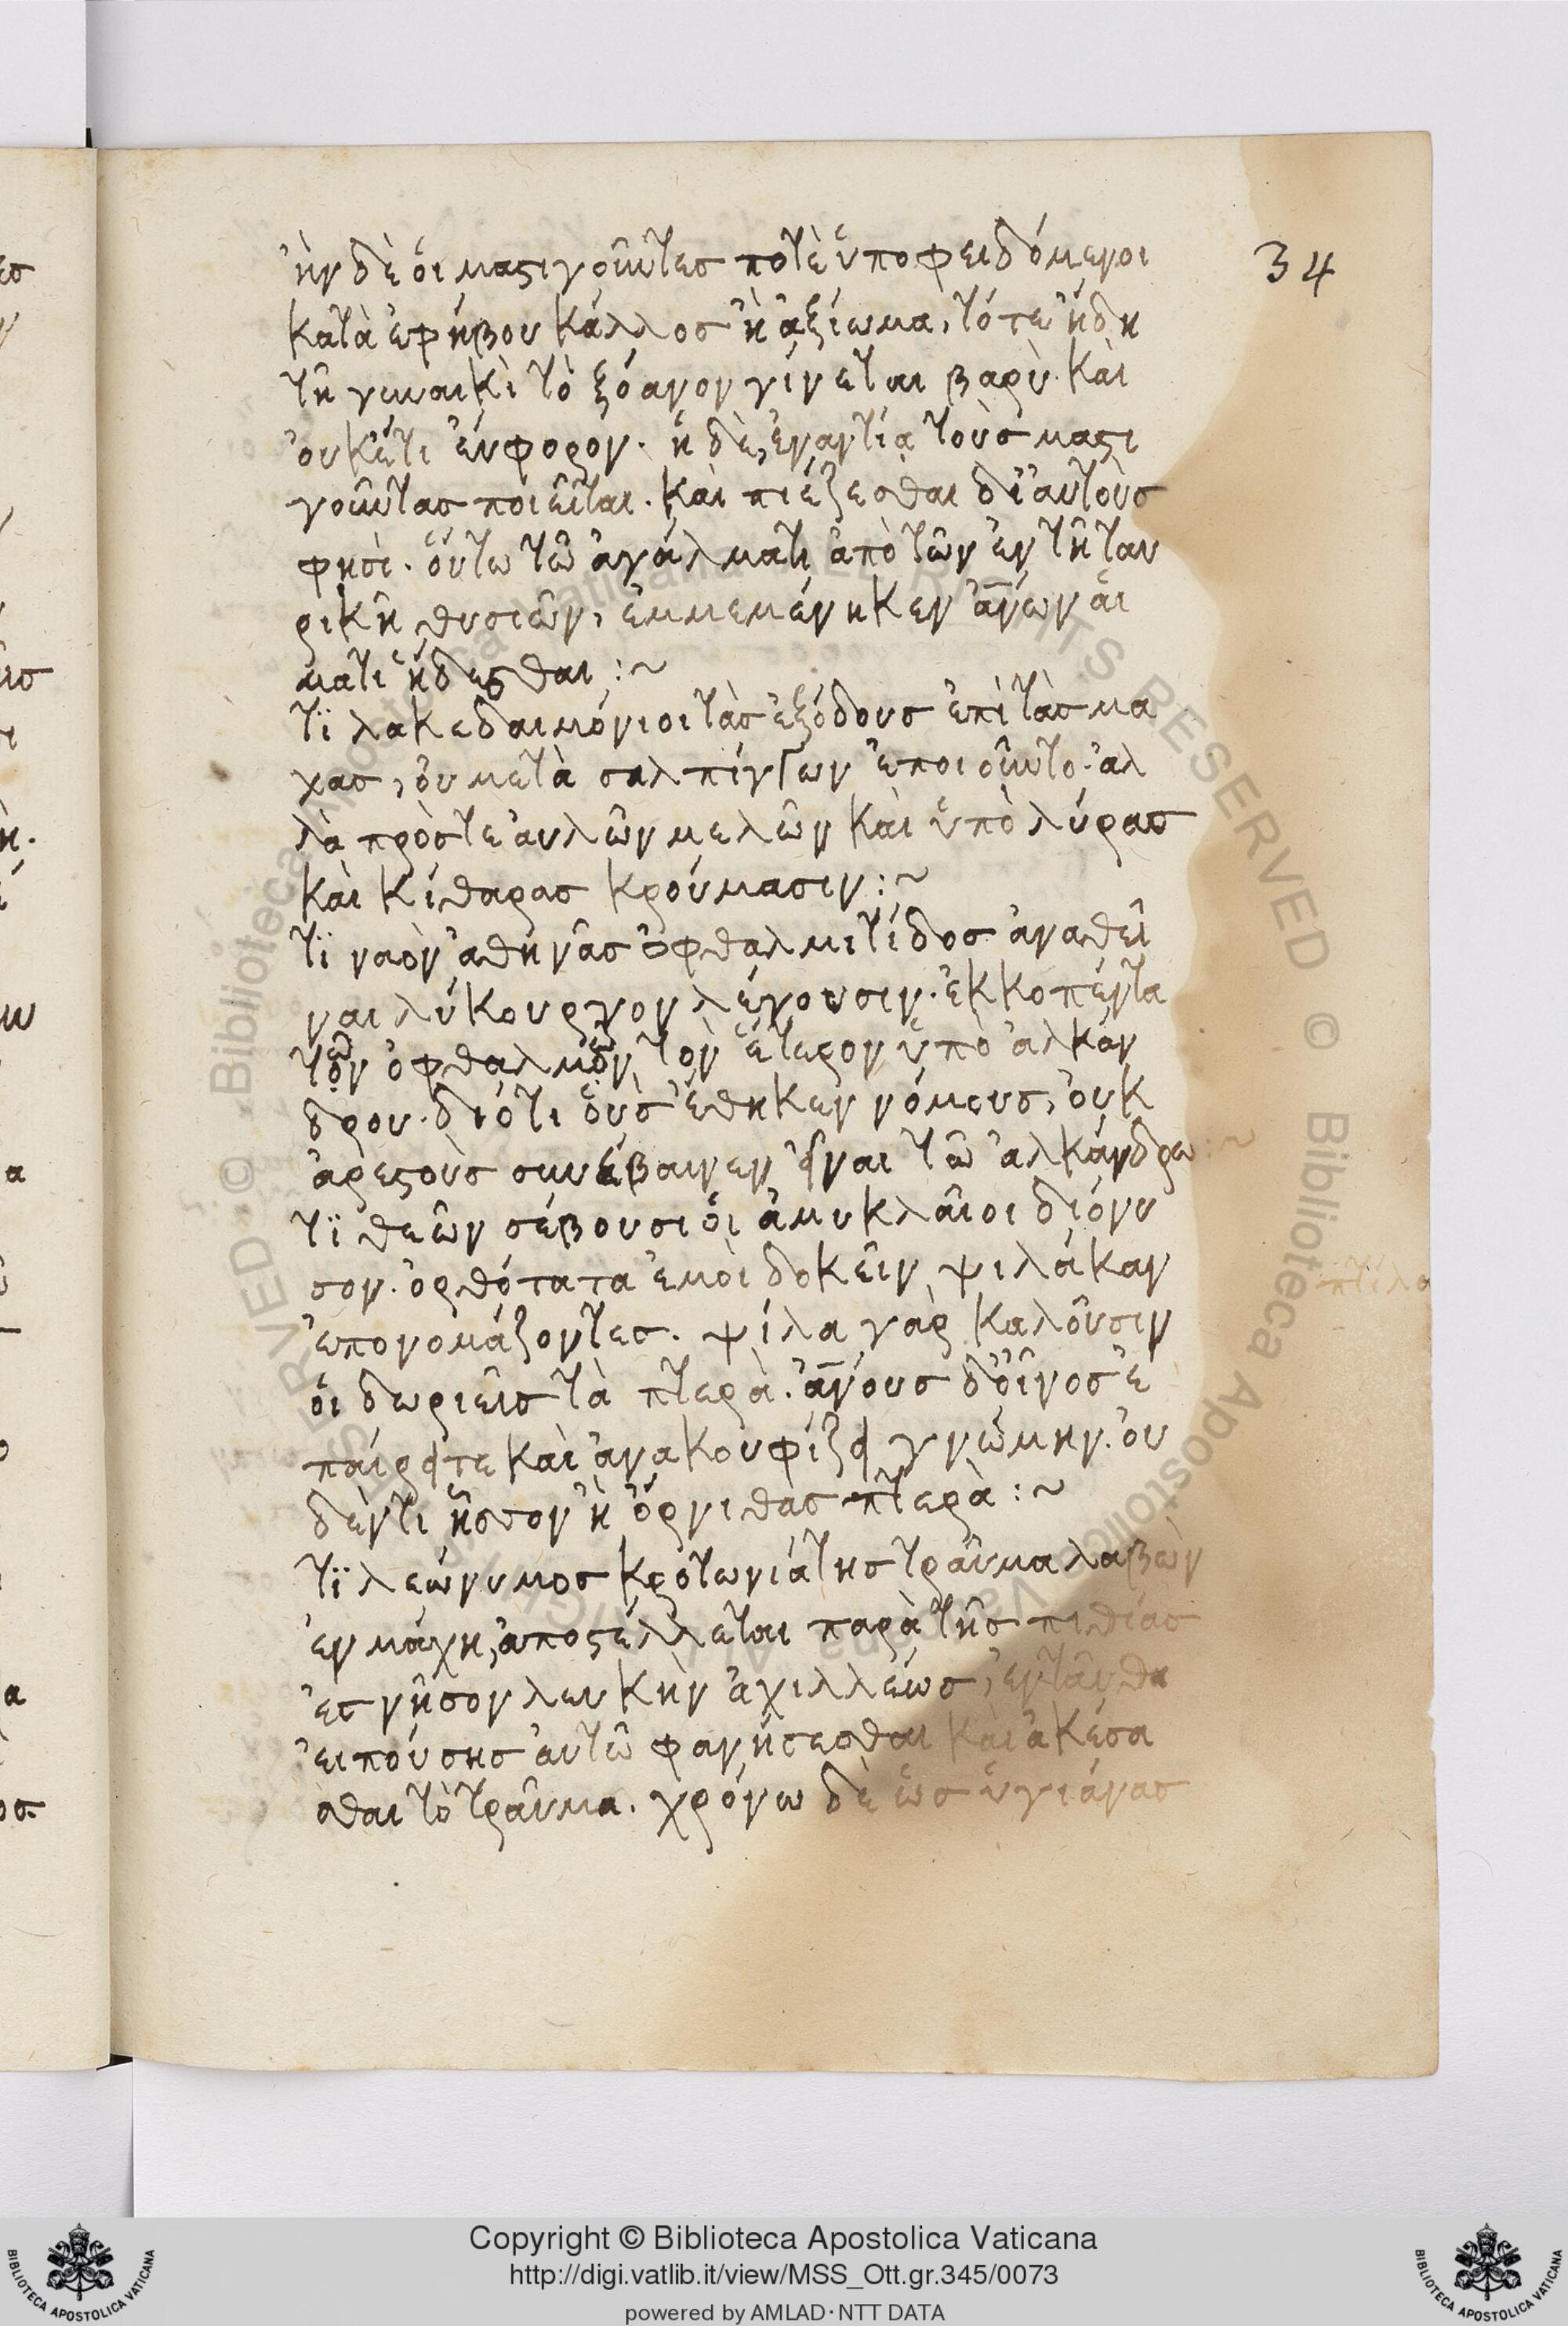 ἢν δὲ ὁι μαςιγοῦντεσ ποτὲ ὑποφειδόμενοι
34
κατὰ ἐφήβου κάλλοσ ἢ ἀξίωμα, τότε ἤδη
τῆ γυναικὶ τὸ ξόανον γίνεται βαρὺ. καὶ
ὀυκέτι ἔυφορον. ἡ δὲ, ἐναντία τοὺσ μαςι
γοῦντασ ποιεῖται. καὶ πιέζεσθαι δἰ ἀυτοὺσ
φησὶ. ὅυτω τῶ ἀγάλματι ἀπὸ τῶν ἐν τῆ ταυ
ρικῆ θυσιῶν, ἐμμεμένηκεν ἀν̅ων ἅι
ματι ἥδεσθαι :~
τϊ λακεδαιμόνιοι τὰσ ἐξόδουσ ἐπὶ τὰσ μα
χασ, ὀυ μετὰ σαλπίγγων ἐποιοῦντο. ἀλ
λὰ πρόστε ἀυλῶν μελῶν καὶ ὑπὸ λύρασ
καὶ κίθαρασ κρούμασιν :~
τϊ ναὸν ἀθηνᾶσ ὀφθαλμιτίδοσ ἀναθεῖ
ναι λύκουργον λέγουσιν. ἐκκοπέντα
τὸν ὀφθαλμὸν τὸν ἕτερον ὑπὸ ἀλκάν
δρου. διότι ὁὺσ ἔθηκεν νόμουσ, ὀυκ
ἀρεςοὺσ συνέβαινεν εἶναι τῶ ἀλκάνδρω :~
τϊ θεῶν σέβουσι ὁι ἀμυκλᾶιοι διόνυ
σον. ὀρθότατα ἐμὸι δοκεῖν ψιλάκαν
πτίλα
ἐπονομάζοντεσ. ψίλα γὰρ καλοῦσιν
ὁι δωριεῖσ τὰ πτερὰ. ἀν̅ουσ δ' ὀῖνοσ ἐ
παίρειτε καὶ ἀνακουφίζει γνώμην. ὀυ
δέν τι ἧσσον ἢ ὄρνιθασ πτερὰ :~
τϊ λεώνυμοσ κροτωνιάτησ τραῦμα λαβὼν
ἐν μάχη, ἀποςέλλεται παρὰ τῆσ πιθίασ
ἐσ νῆσον λευκὴν ἀχιλλέωσ, ἐνταῦθα
ἐιπούσησ ἀυτῶ φανήσεσθαι καὶ ἀκέσα
σθαι τὸ τραῦμα. χρόνω δὲ ὡσ ὑγιάνασ
Copyright © Biblioteca Apostolica Vaticana
http://digi.vatlib.it/view/MSS_Ott.gr.345/0073
powered by AMLAD·NTT DATA